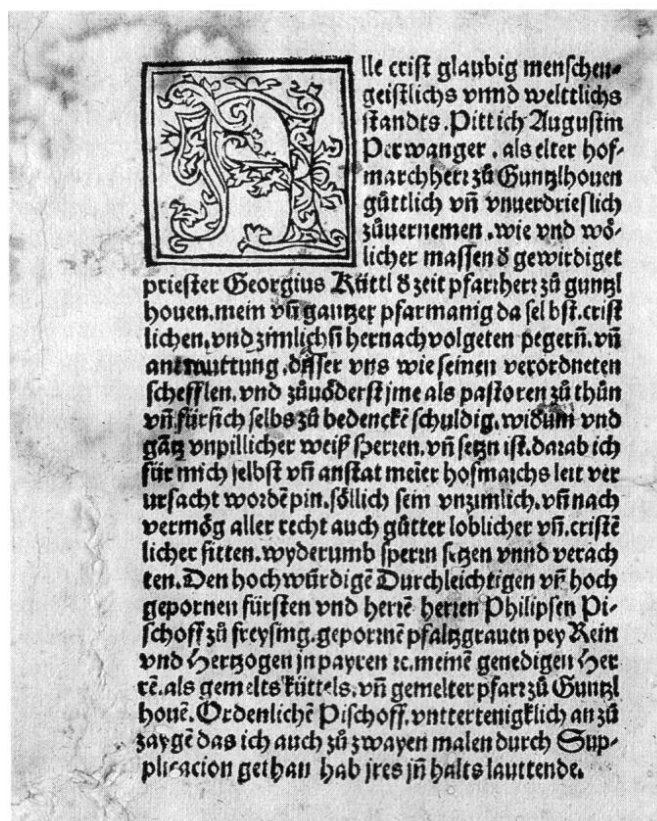 Alle crist glaubig menschen⸗
geistlichs vnnd welttlichs
standts. Pitt ich Augustin
Perwanger . als elter hof⸗
marchherr zů Guntzlhouen
gůttlich vñ vnuerdrieslich
zůuernemen . wie vnd wô⸗
licher massen d gewirdiget
priester Georgius Kûttl d zeit pfarrherr zů guntzl
houen. mein vñ gantzer pfarmanig da selbst. crist
lichen. vnd zimlichñ hernach volgeten pegerñ. vñ
anmuttung . disser vns wie seinen verordneten
schefflen. vnd zůuôderst jme als pastoren zů thûn
vñ. fûr sich selbs zů bedenckẽ schuldig. widum vnd
gãtz vnpillicher weiß sperren. vñ setzn ist. darab ich
fûr mich selbst vñ anstat meier hofmarchs leit ver
ursacht wordẽ pin. sôllich sein vnzimlich. vñ nach
vermôg aller recht auch gůtter loblicher vñ. cristẽ
licher sitten. wyderumb sperrn setzen vnnd verach
ten. Den hochwûrdigẽ Durchleichtigen vñ hoch
gepornen fûrsten vnd herrẽ herren Philipsen Pi⸗
schoff zů freysing. gepornẽ pfaltzgrauen pey Rein
vnd Hertzogen jn payren ꝛc. meinẽ genedigen Her
rẽ. als gemelts kûttels. vñ gemelter pfarr zů Guntzl
houẽ. Ordenlichẽ Pischoff. vnttertenigklich an zů
zaygẽ das ich auch zů zwayen malen durch Sup⸗
plicacion gethan hab jres jñ halts lauttende.